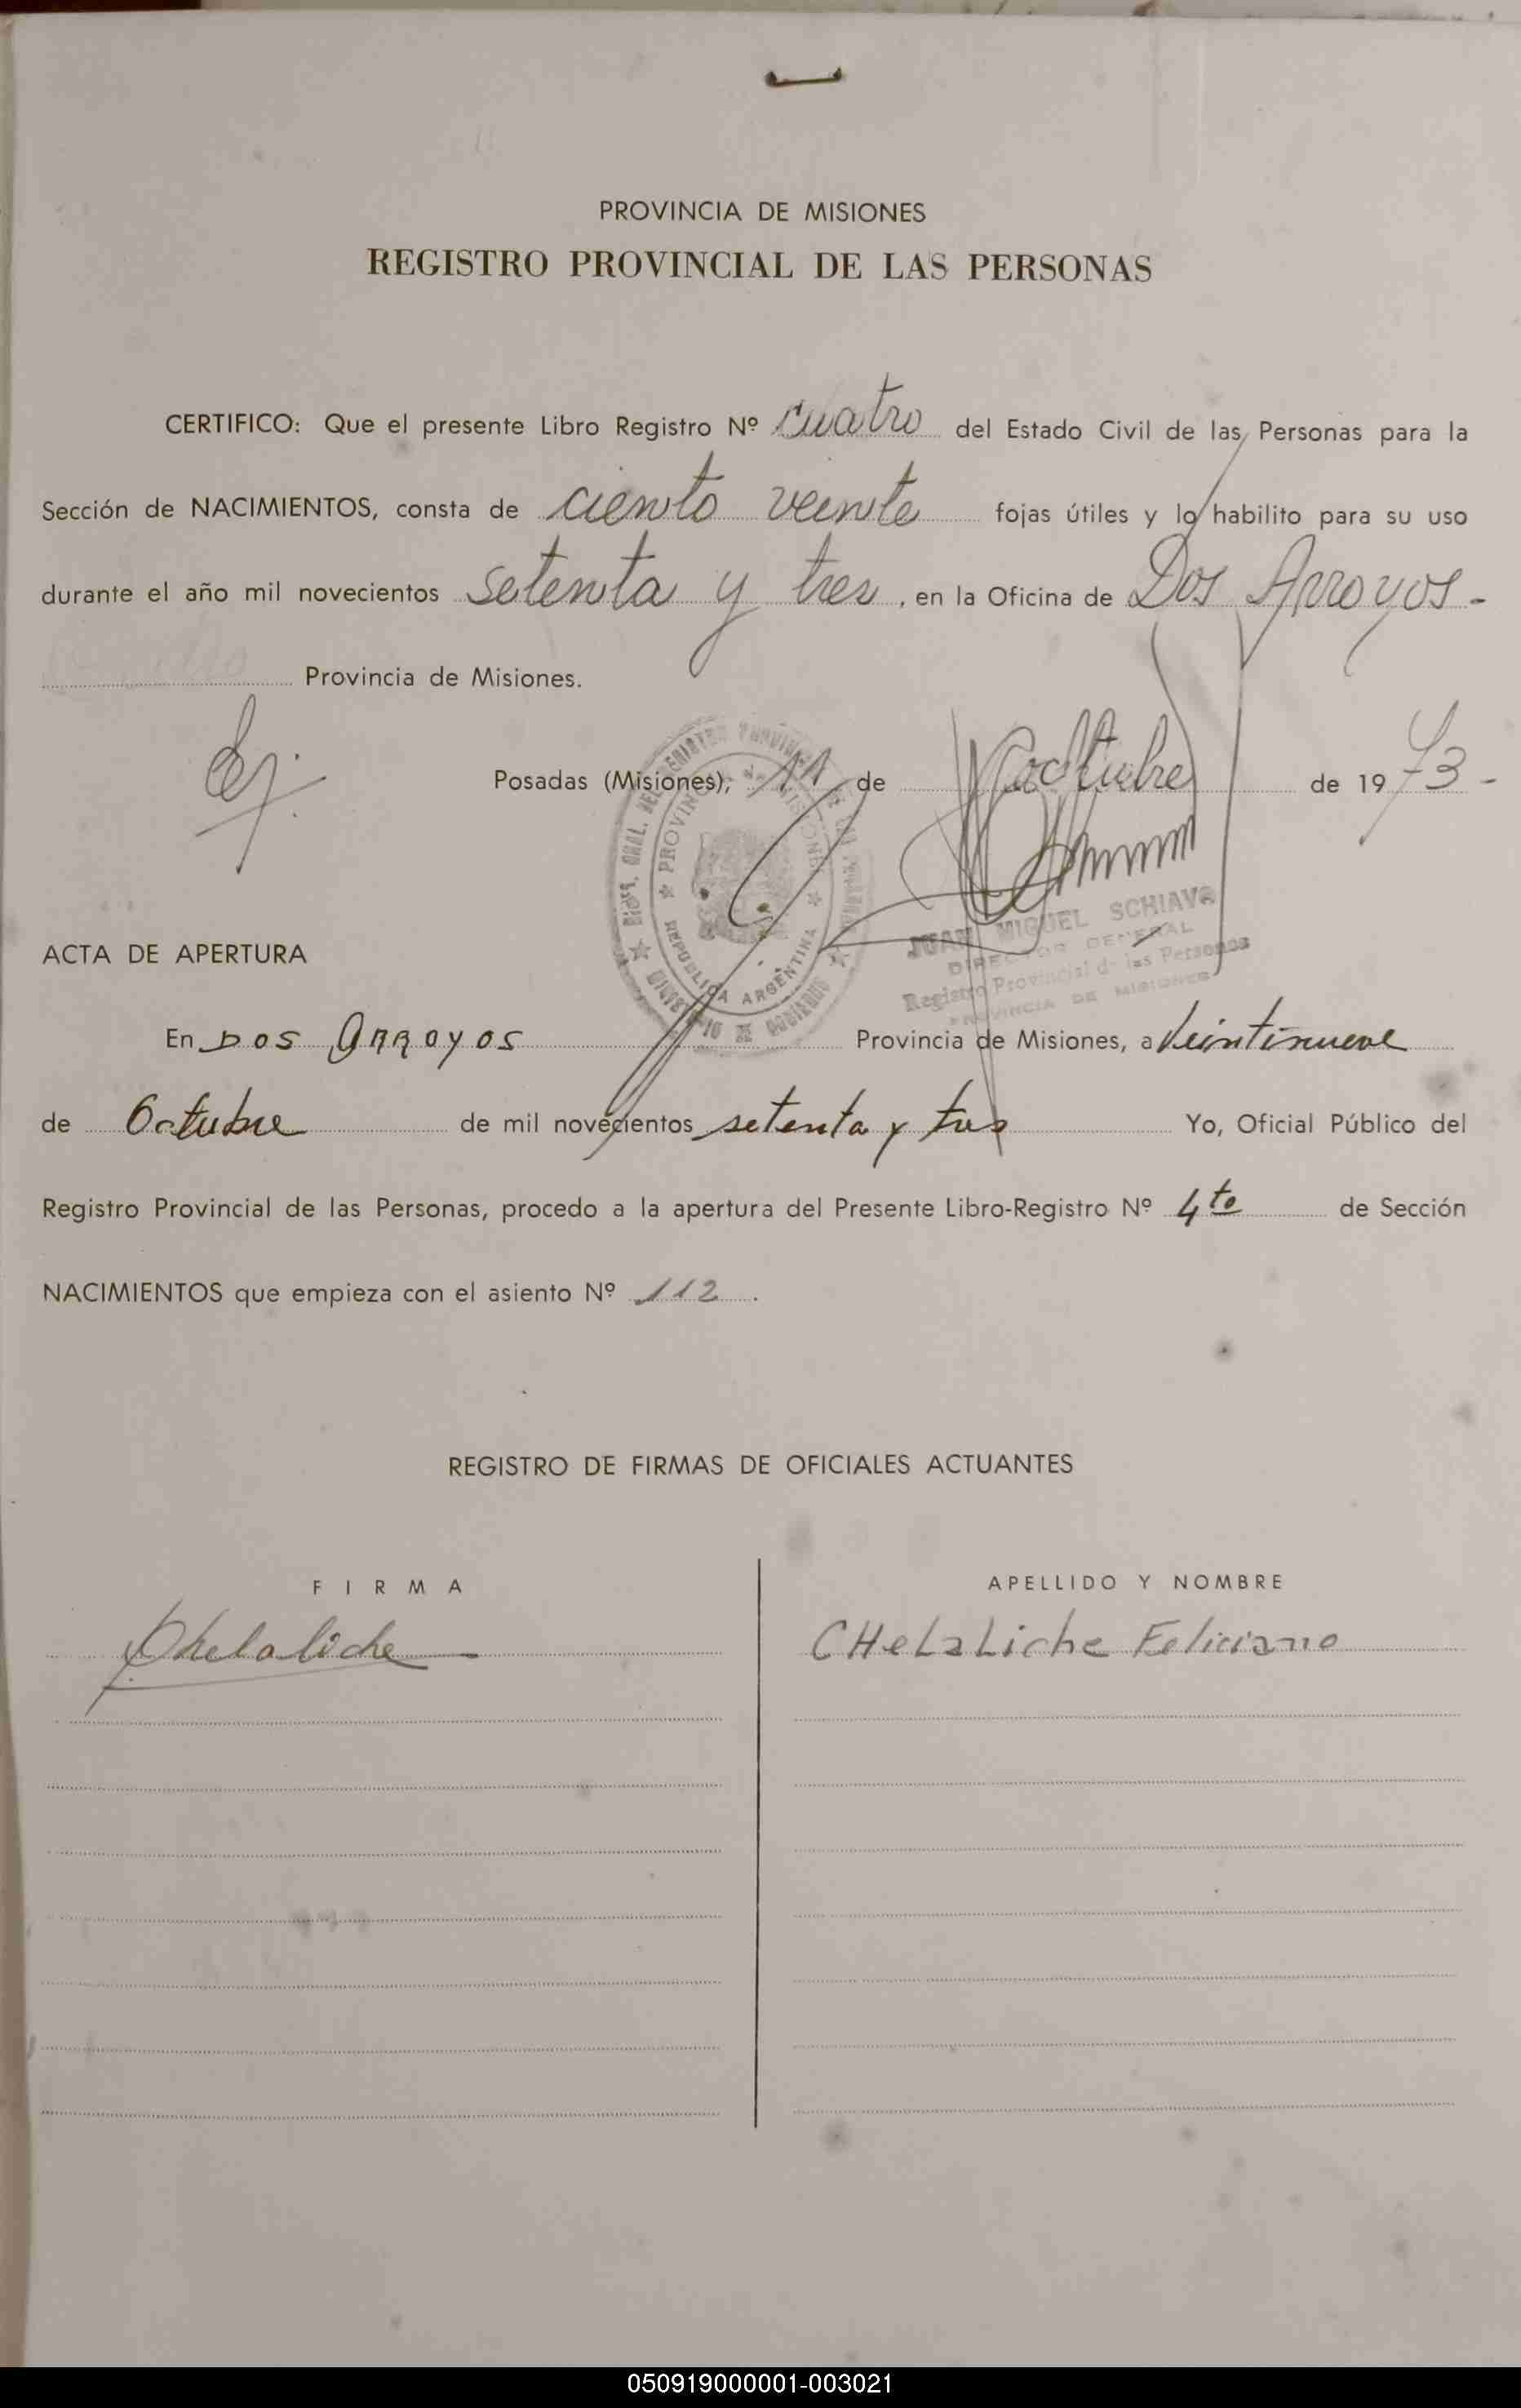 PROVINCIA DE MISIONES
REGISTRO PROVINCIAL DE LAS PERSONAS
CERTIFICO: Que el presente Libro Registro Nº cuatro del Estado Civil de las Personas para la
Sección de NACIMIENTOS, consta de ciento veinte fojas útiles y lo habilito para su uso
durante el año mil novecientos setenta y tres, en la Oficina de Dos Arroyos-
Provincia de Misiones.
Posadas (Misiones), 11 de octubre de 1973-
DIREC. GRAL. DEL REGISTRO PROVINCIAL DE LAS PERSONAS
MINISTERIO DE GOBIERNO
PROVINCIA DE MISIONES
REPUBLICA ARGENTINA
JUAN MIGUEL SCHIAVO
DIRECTOR GENERAL
Registro Provincial de las Personas
PROVINCIA DE MISIONES
ACTA DE APERTURA
En DOS ARROYOS Provincia de Misiones, a Veintinueve
de Octubre de mil novecientos setenta y tres Yo, Oficial Público del
Registro Provincial de las Personas, procedo a la apertura del Presente Libro-Registro Nº 4to de Sección
NACIMIENTOS que empieza con el asiento Nº 112.
REGISTRO DE FIRMAS DE OFICIALES ACTUANTES
FIRMA APELLIDO Y NOMBRE
Chelaliche CHeLaLiche Feliciano
050919000001-003021